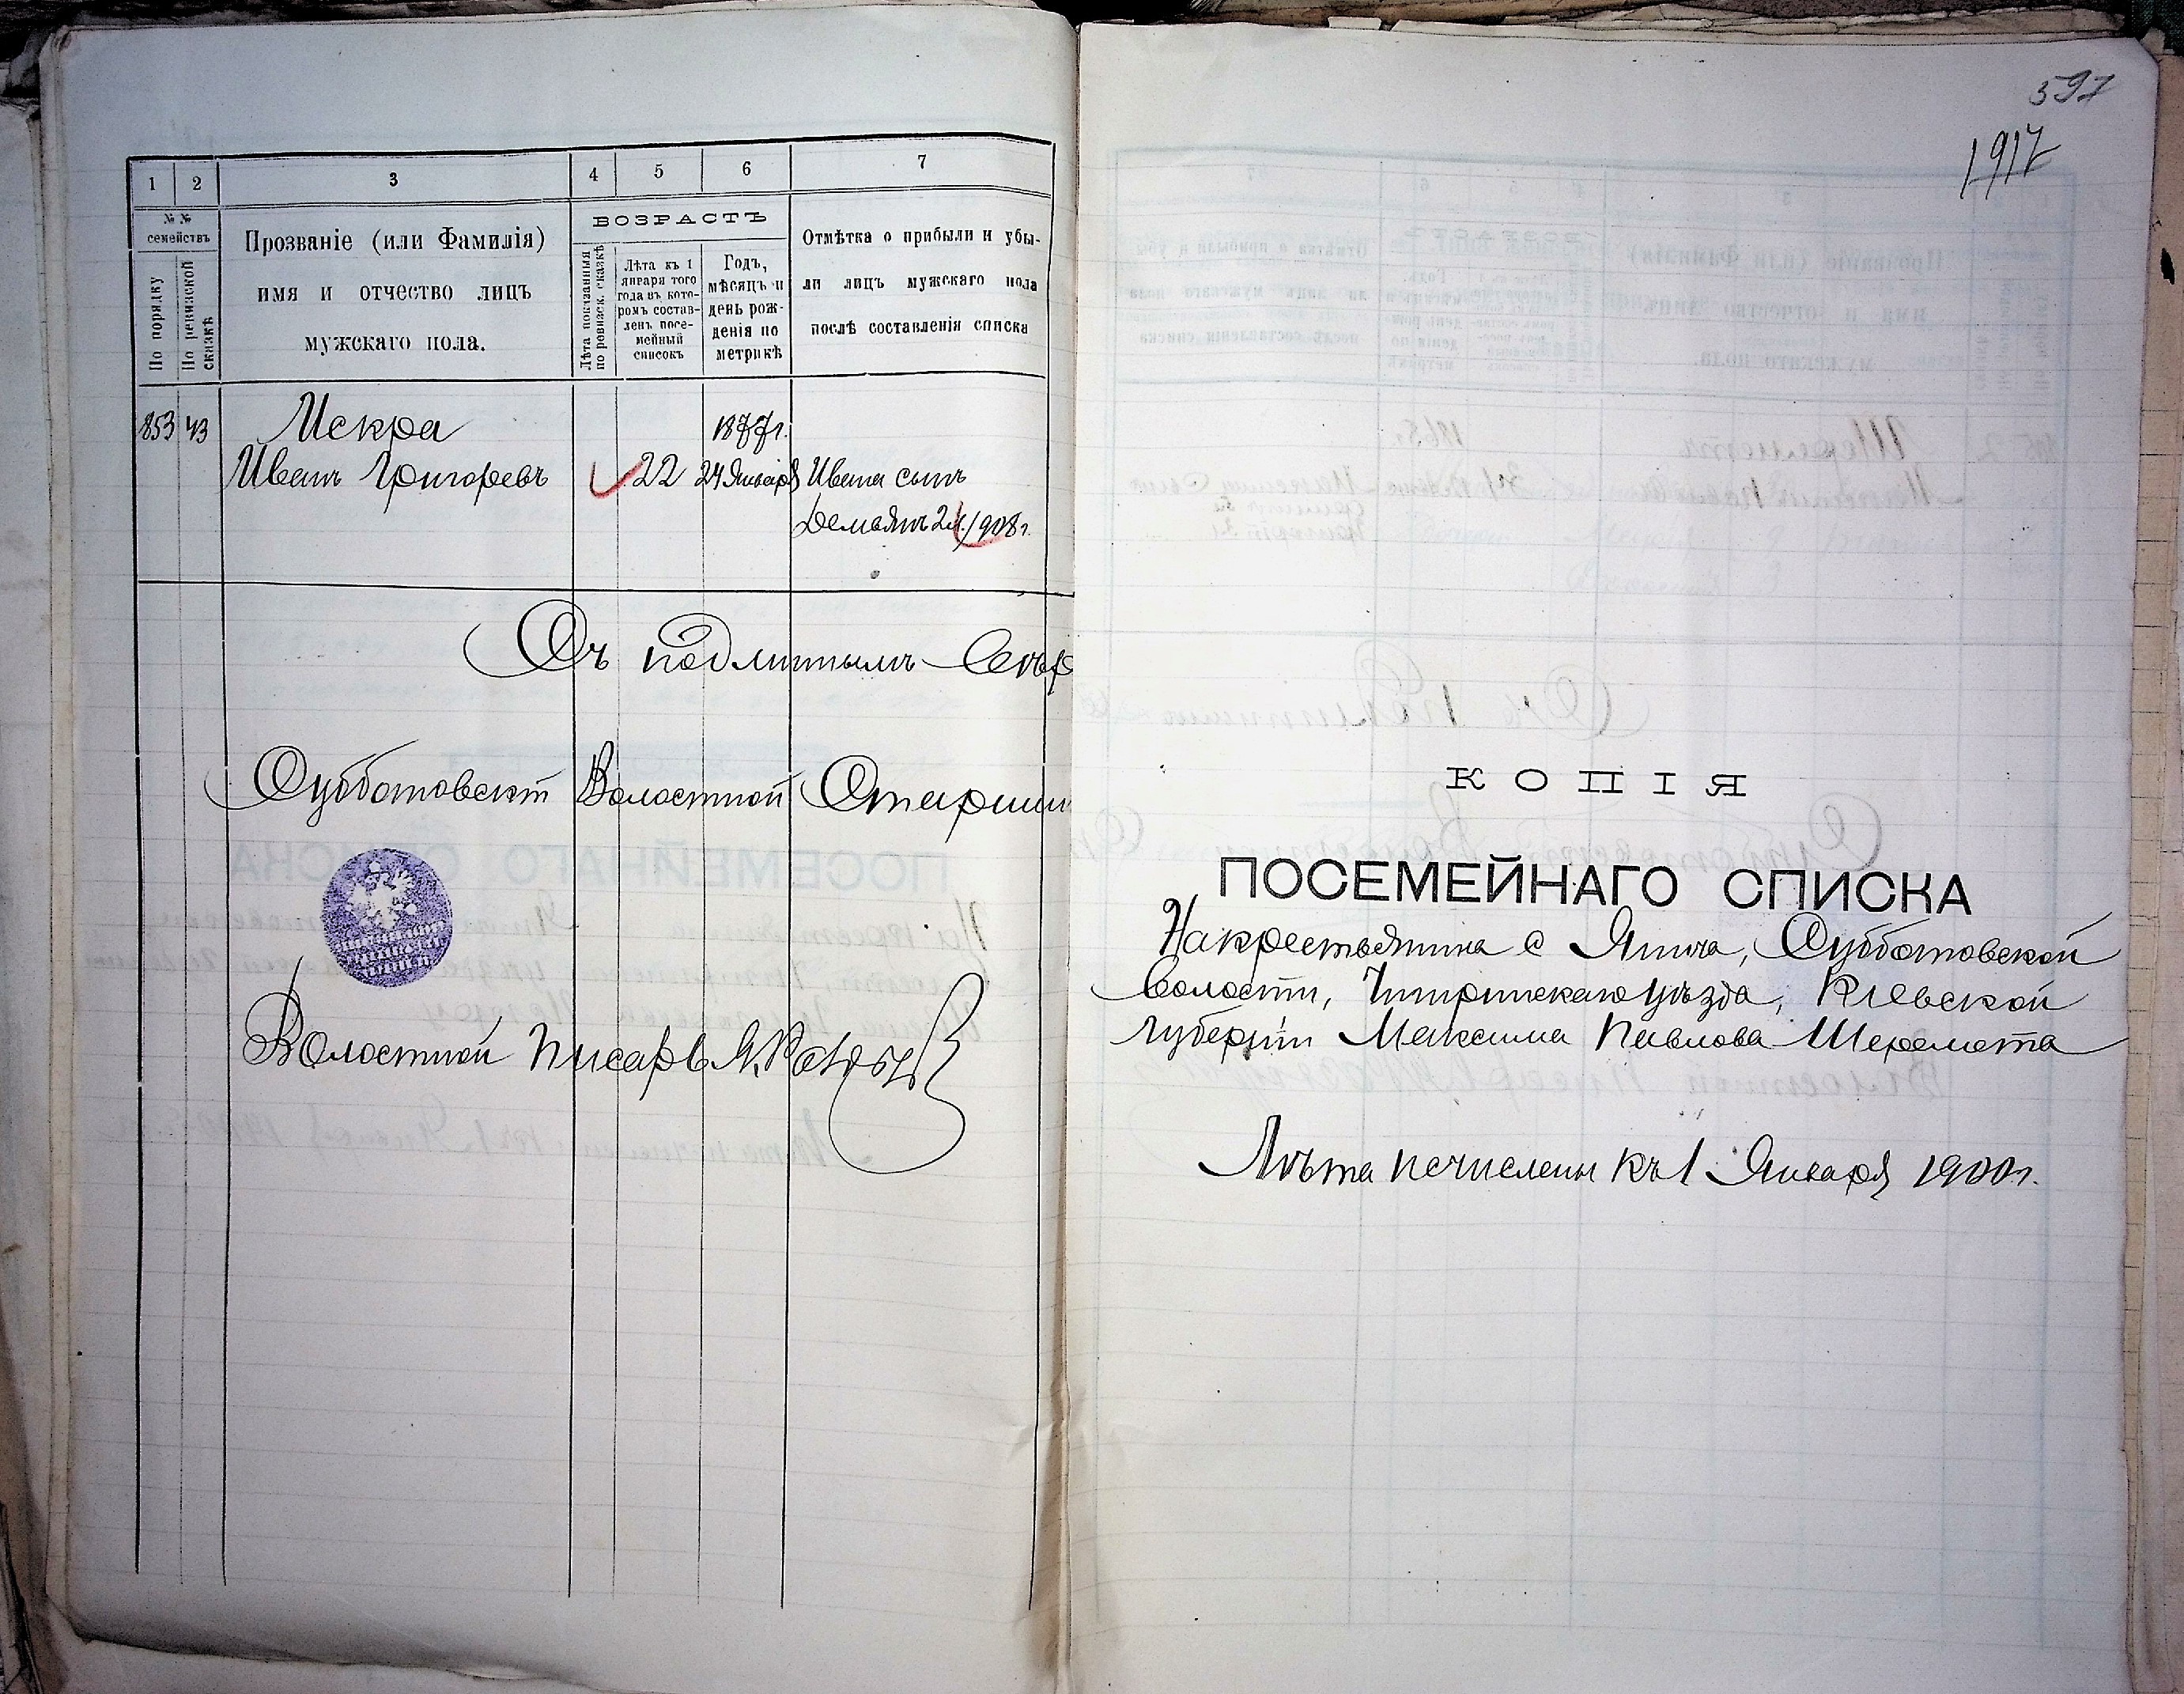 1 2 3 4 5 6 7
№ № семействъ
По порядку
По ревизской сказкѣ
Прозваніе (или Фамилія)
имя и отчество лицъ
мужскаго пола.
ВОЗРАСТЪ
Лѣта показанныя по ревизск. сказкѣ
Лѣта къ 1
января того
года въ кото-
ромъ состав-
ленъ посе-
мейный
списокъ
Годъ,
мѣсяцъ и
день рож-
денія по
метрикѣ
Отмѣтка о прибыли и убы-
ли лицъ мужскаго пола
послѣ составленія списка
853 43 Искра 1877г.
Иванъ Григорьевъ 22 24 Января Ивана сынъ
Демьянъ 1908г.
Съ подлиннымъ вѣр
Субботовскій Волостной Старшин
Волостной Писарь
597
1917
КОПІЯ
ПОСЕМЕЙНАГО СПИСКА
На крестьянина с Янича, Субботовской
волости, Чигиринскаго уѣзда, Кіевской
губерніи Максима Павлова Шеремета
Лѣта исчислены къ 1 Января 1900г.